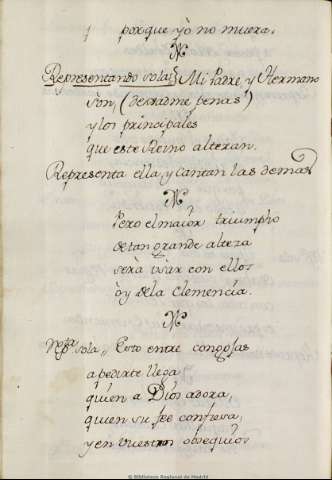 y porque yò no muera.
Representando sola, Mi Padre, y Hermano
son, (dexadme penas)
y los principales
que este Reino alteran.
Representa ella, y cantan las demas
Pero el maior triumpho
de tan grande alteza
serà usar con ellos
òy de la clemencia.
sola, Esto entre congojas
a pedirte llega
quien a Dios adora,
quien su fee confiesa,
y en vuestros obsequios
© Biblioteca Regional de Madrid